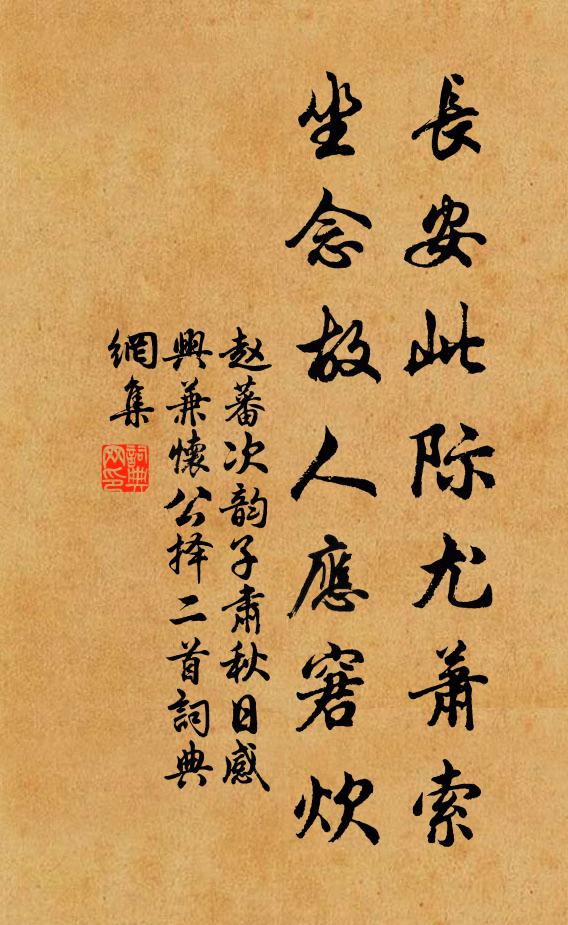 長安此际尤蕭索
坐念故人應窘炊
赵蕃次韵子肃秋日感
興兼懷公择二首詞典
網集
詞典
网印